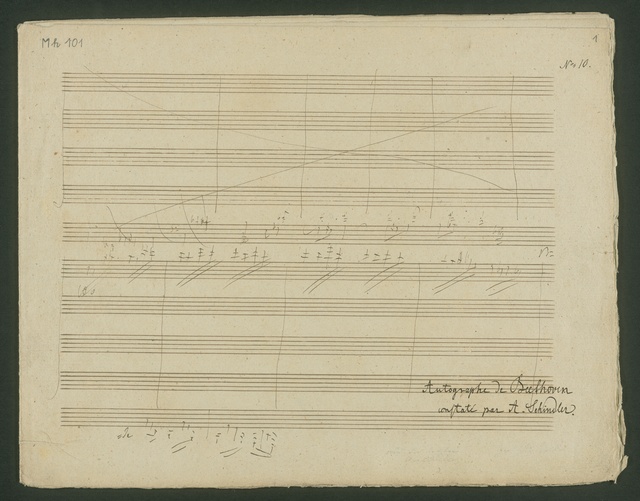 Mh 101
1
No 10.
Autographe de Beethoven
constaté par A. Schindler